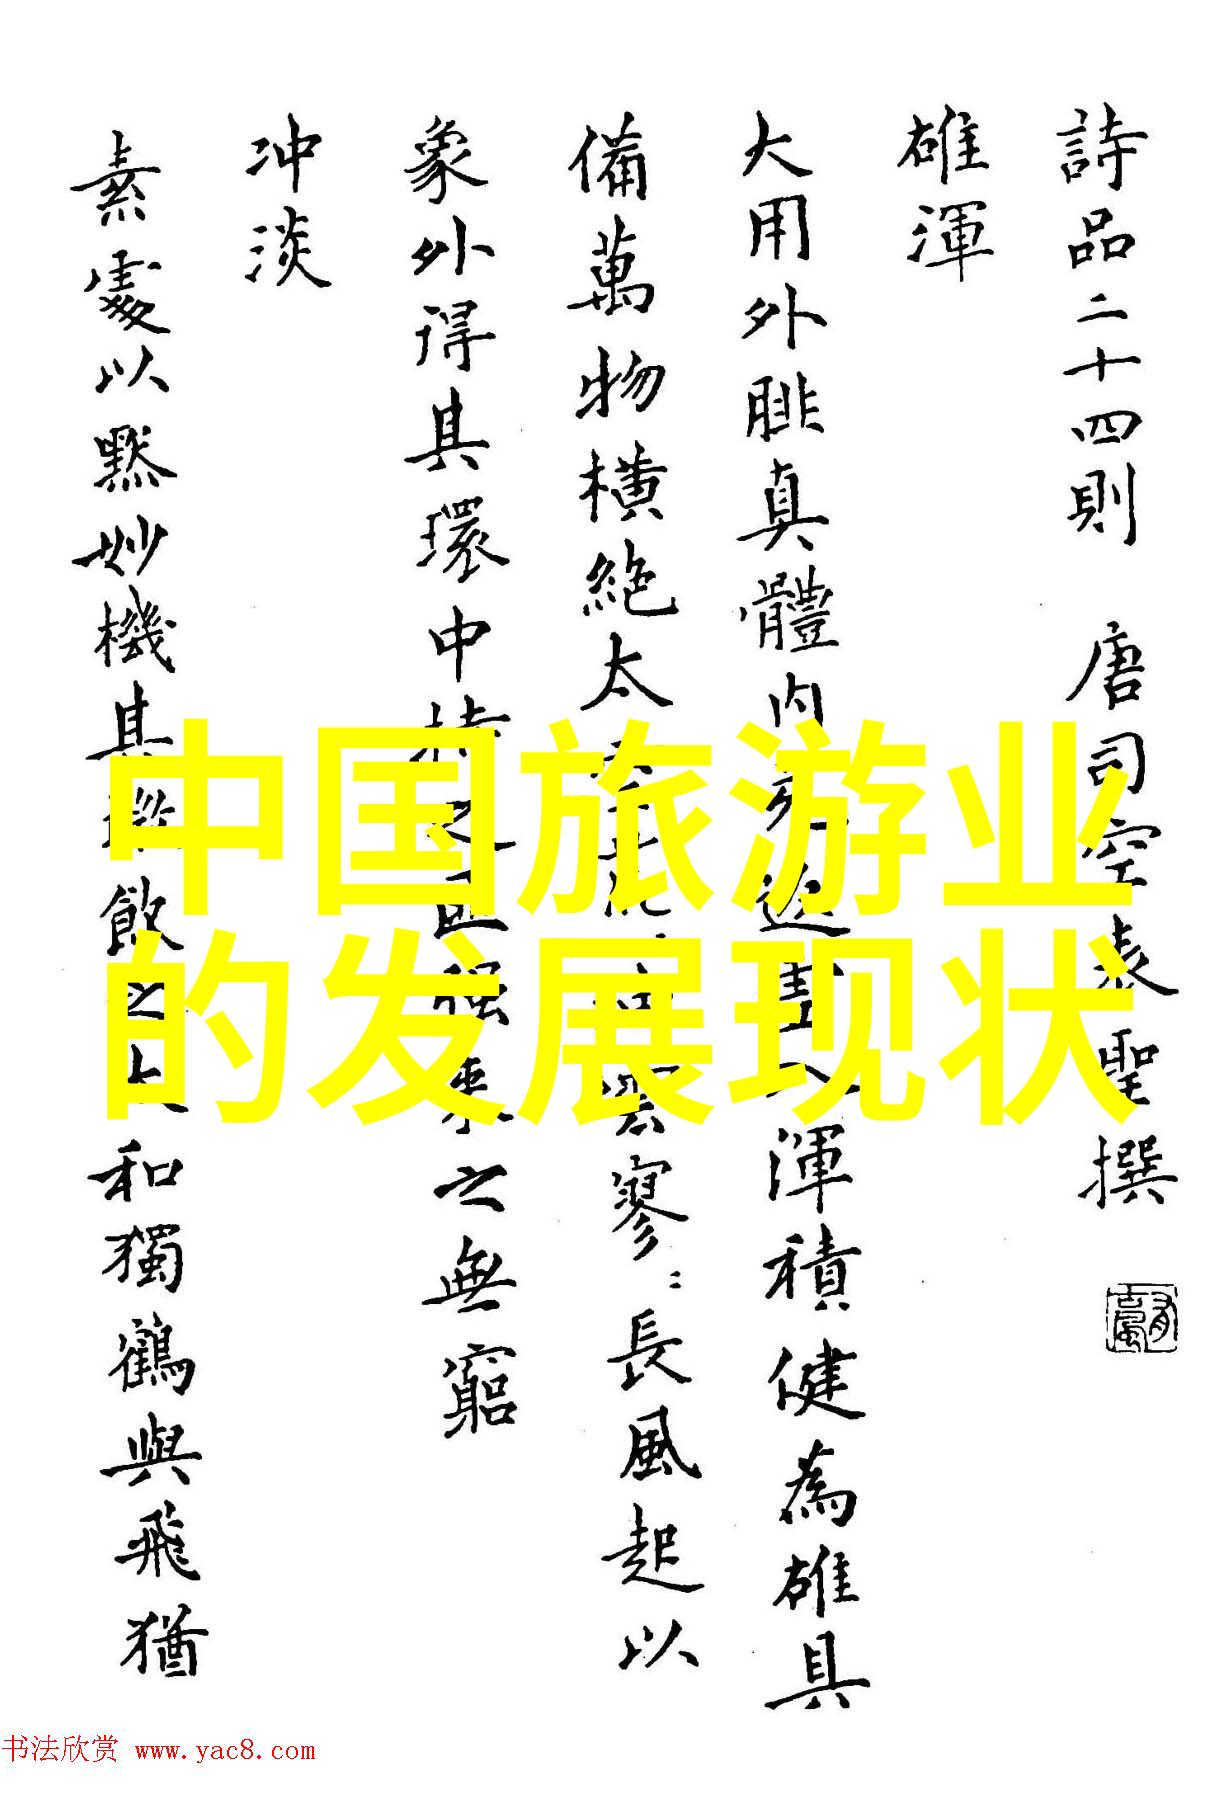 詩品二十四則 唐司空表聖撰
雄渾
大用外腓真體内充返虛入渾積健為雄具
備萬物橫絕太空荒荒油雲寥:長風起以
象外得其環中持之匪強來之無窮
冲淡
素處以默妙機其微飲之太和獨鶴與飛猶
中国旅游业
的发展现状
书法欣赏 www.yac8.com